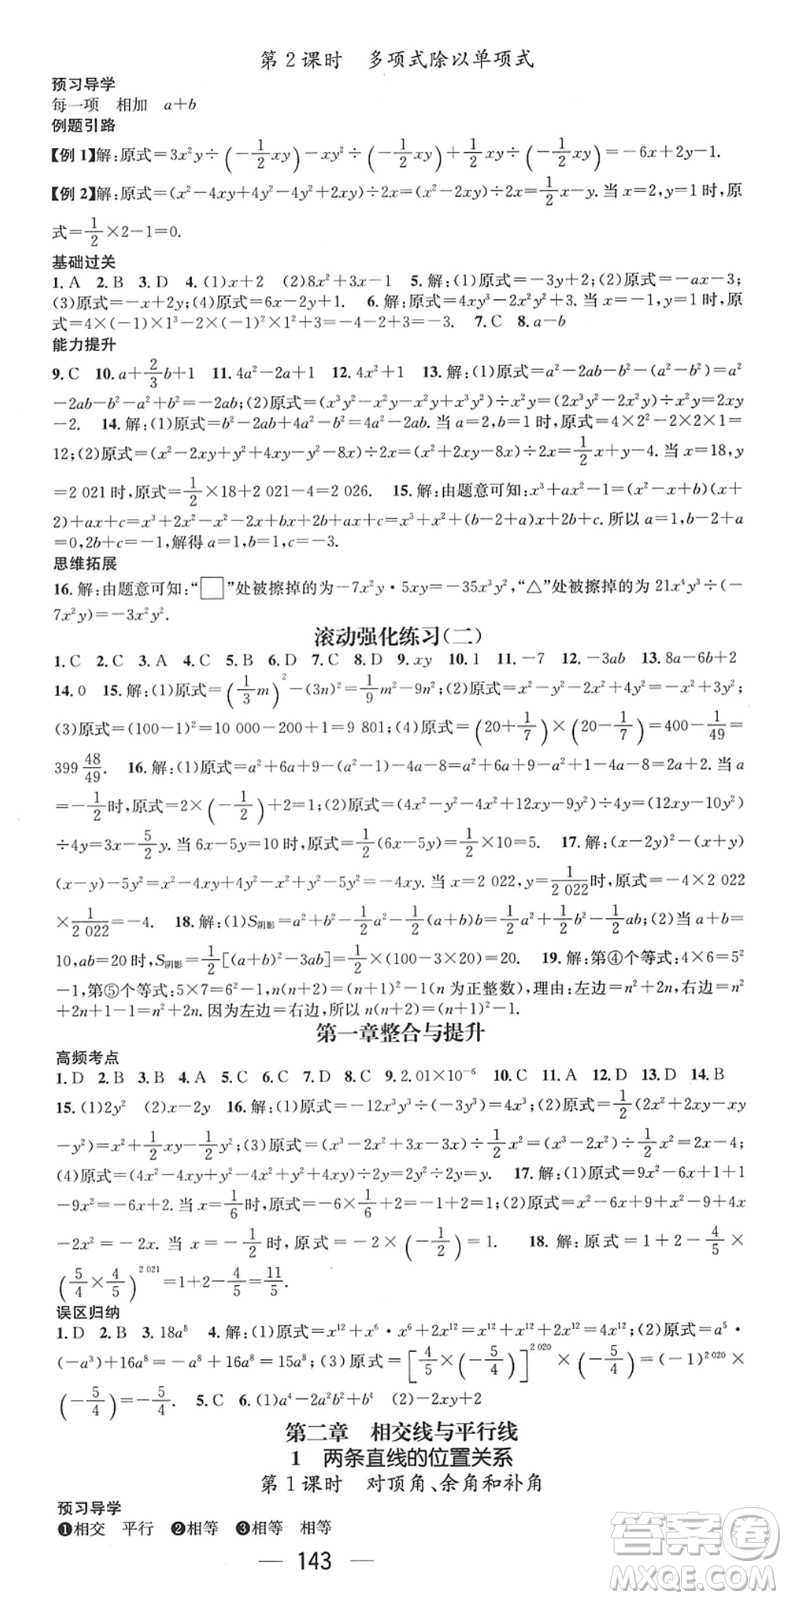 第2课时　多项式除以单项式
预习导学
每一项　相加　a+b
例题引路
【例1】解:原式=3x²y÷(-1/2xy)-xy²÷(-1/2xy)+1/2xy÷(-1/2xy)=-6x+2y-1.
【例2】解:原式=(x²-4xy+4y²-4y²+2xy)÷2x=(x²-2xy)÷2x=1/2x-y.当x=4,y=1时,原
式=1/2×2-1=0.
基础过关
1.A　2.B　3.D　4.(1)x+2　(2)8x²+3x-1　5.解:(1)原式=2x-4;(2)原式=-3x+2;
(3)原式=-x+2y;(4)原式=6x-2y-1.　6.解:原式=4xy³-2x²y²+2x²y²=4xy³.当x=-1,y=1时,
原式=4×(-1)×1³-2×(-1)²×1²+2×(-1)²×1²+3=-3.　7.C　8.a-b
能力提升
9.C　10.a+2/3b+1　11.4a²-2a+1　12.4x²+1　13.解:(1)原式=a²-2ab-b²-(a²-b²)=a²
-2ab-b²-a²+b²=-2ab;(2)原式=(x³y²-x²y-x²y+x³y²)÷x²y=(2x³y²-2x²y)÷x²y=2xy
-2.　14.解:(1)原式=b²-2ab+4a²-b²=4a²-2ab.当a=2,b=1时,原式=4×2²-2×2×1=
12;(2)原式=(x²-2xy+y²+4xy-y²-8x)÷2x=(x²+2xy-8x)÷2x=1/2x+y-4.当x=18,y
=2 021时,原式=1/2×18+2 021-4=2 026.　15.解:由题意可知:x³+ax+c=(x²-x+b)(x+
2)+ax+c=x³+2x²-x²-2x+bx+2b=x³+x²+(b-2)x+2b.所以a=1,b-2+a
=0,2b+c=0,解得a=1,b=1,c=-2.
思维拓展
16.解:由题意可知:“□”处被擦掉的为-7x²y·5xy=-35x³y²,“△”处被擦掉的为21x⁴y³÷(-
7x²y)=-3x²y².
滚动强化练习(二)
1.C　2.C　3.C　4.D　5.B　6.D　7.D　8.D　9.xy　10.1　11.-7　12.-3ab　13.8a-6b+2
14.0　15.解:(1)原式=(1/3m)²-(3n)²=1/9m²-9n²;(2)原式=x²+2x-4-x²=2x-4;
(3)原式=(100-1)²=10 000-200+1=9 801;(4)原式=(20+1/7)×(20-1/7)=400-1/49=
399 48/49.　16.解:(1)原式=a²+6a+9-(a²-1)-4a-8=a²+6a+9-a²+1-4a-8=2a+2.当a
=-1/2时,原式=2×(-1/2)+2=1;(2)原式=(4x²-y²-4x²+12xy-9y²)÷4y=(12xy-10y²)
÷4y=3x-5/2y.当6x-5y=10时,原式=1/2(6x-5y)=1/2×10=5.　17.解:(x-2y)²-(x+y)
(x-y)-5y²=x²-4xy+4y²-x²+y²-5y²=-4xy.当x=2 022,y=1/2 022时,原式=-4×2 022
×1/2 022=-4.　18.解:(1)S阴影=a²+b²-1/2a²-1/2(a+b)b=1/2a²+1/2b²-1/2ab;(2)当a+b=
10,ab=20时,S阴影=1/2[(a+b)²-3ab]=1/2×(100-3×20)=20.　19.解:第④个等式:4×6=5²
-1,第⑤个等式:5×7=6²-1;n(n+2)=(n+1)²-1(n为正整数),理由:左边=n(n+2)=n²
+2n,右边=n²+2n+1-1=n²+2n.因为左边=右边,所以n(n+2)=(n+1)²-1.
第一章整合与提升
高频考点
1.D　2.B　3.B　4.A　5.C　6.C　7.C　8.C　9.2.01×10⁻⁶　10.C　11.D　12.A　13.D　14.B
15.(1)2y²　(2)x-2y　16.解:(1)原式=-12x³y³÷(-3y³)=4x³;(2)原式=1/2(2x²+2xy-xy
-y²)=x²+1/2xy-1/2y²;(3)原式=(x³y-x²y²-x²y+x³y²)÷3x²y
(4)原式=(4x²-4xy+y²-4x²+y²)÷2y=(2y²-4xy)÷2y=y-2x.　17.解:(1)原式=9x²-6x+1+1
-9x²+6x=-6x+2.当x=1/6时,原式=-6×1/6+2=1;(2)原式=4-x²+x²-2x+4
-2x=-2x².当x=-1/2时,原式=-2×(-1/2)²=-1/2.　18.解:原式=1+2-4/5×
(5/4×4/5)²⁰²¹=1+2-4/5=11/5.
误区归纳
1.D　2.B　3.18a⁸　4.解:(1)原式=x¹²+x⁶·x⁶+2x¹²=x¹²+x¹²+2x¹²=4x¹²;(2)原式=a⁵·
(-a³)+16a⁸=-a⁸+16a⁸=15a⁸;(3)原式=[4/5×(-5/4)]²⁰²⁰×(-5/4)=(-1)²⁰²⁰
×(-5/4)=-5/4.　5.C　6.(1)a⁴-2a²b²+b⁴　(2)-2xy+2
第二章　相交线与平行线
1　两条直线的位置关系
第1课时　对顶角、余角和补角
预习导学
❶相交　平行　❷相等　❸相等　相等
143
答案圈
MXQE.COM